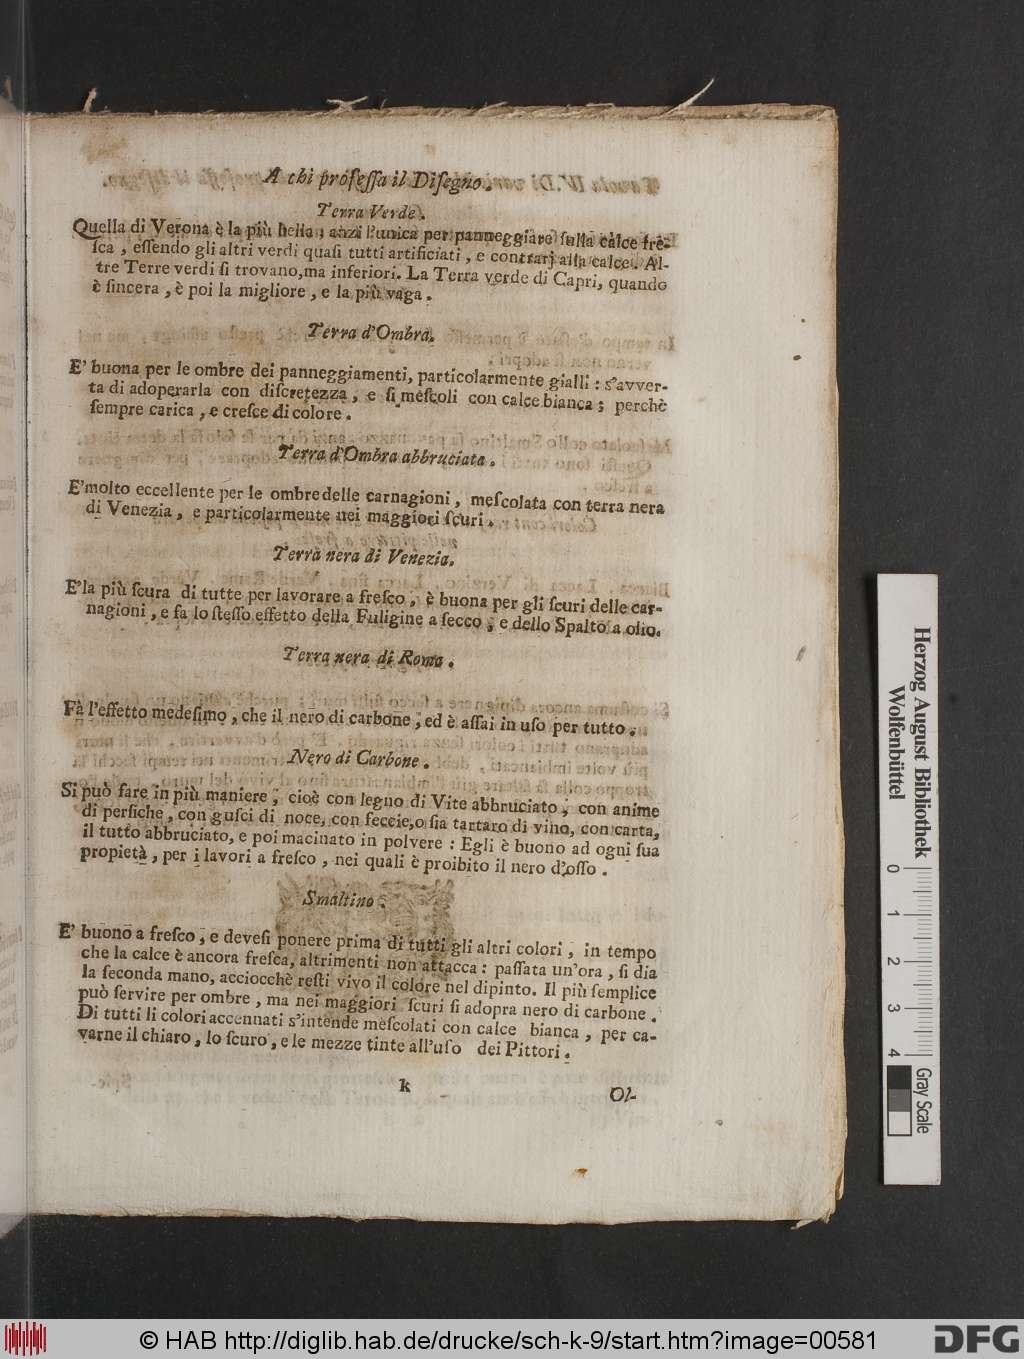 A chi profeſſa il Diſegno.
Terra Verde.
Quella di Verona è la più bella, anzi l'unica per panneggiare ſulla calce fre-
ſca, eſſendo gli altri verdi quaſi tutti artificiati, e contrarj alla calce. Al-
tre Terre verdi ſi trovano, ma inferiori. La Terra verde di Capri, quando
è ſincera, è poi la migliore, e la più vaga.
Terra d'Ombra.
E' buona per le ombre dei panneggiamenti, particolarmente gialli: s'avver-
ta di adoperarla con diſcretezza, e ſi meſcoli con calce bianca; perchè
ſempre carica, e creſce di colore.
Terra d'Ombra abbruciata.
E' molto eccellente per le ombre delle carnagioni, meſcolata con terra nera
di Venezia, e particolarmente nei maggiori ſcuri.
Terra nera di Venezia.
E' la più ſcura di tutte per lavorare a freſco, è buona per gli ſcuri delle car-
nagioni, e fa lo ſteſſo effetto della Fuligine a ſecco, e dello Spalto a olio.
Terra nera di Roma.
Fà l'effetto medeſimo, che il nero di carbone, ed è aſſai in uſo per tutto.
Nero di Carbone.
Si può fare in più maniere, cioè con legno di Vite abbruciato, con anime
di perſiche, con guſci di noce, con feccie, o ſia tartaro di vino, con carta,
il tutto abbruciato, e poi macinato in polvere: Egli è buono ad ogni ſua
propietà, per i lavori a freſco, nei quali è proibito il nero d'oſſo.
Smaltino.
E' buono a freſco, e deveſi ponere prima di tutti gli altri colori, in tempo
che la calce è ancora freſca, altrimenti non attacca: paſſata un'ora, ſi dia
la ſeconda mano, acciocchè reſti vivo il colore nel dipinto. Il più ſemplice
può ſervire per ombre, ma nei maggiori ſcuri ſi adopra nero di carbone.
Di tutti li colori accennati s'intende meſcolati con calce bianca, per ca-
varne il chiaro, lo ſcuro, e le mezze tinte all'uſo dei Pittori.
k
Ol-
Herzog August Bibliothek
Wolfenbüttel
0 1 2 3 4
Gray Scale
© HAB http://diglib.hab.de/drucke/sch-k-9/start.htm?image=00581
DFG